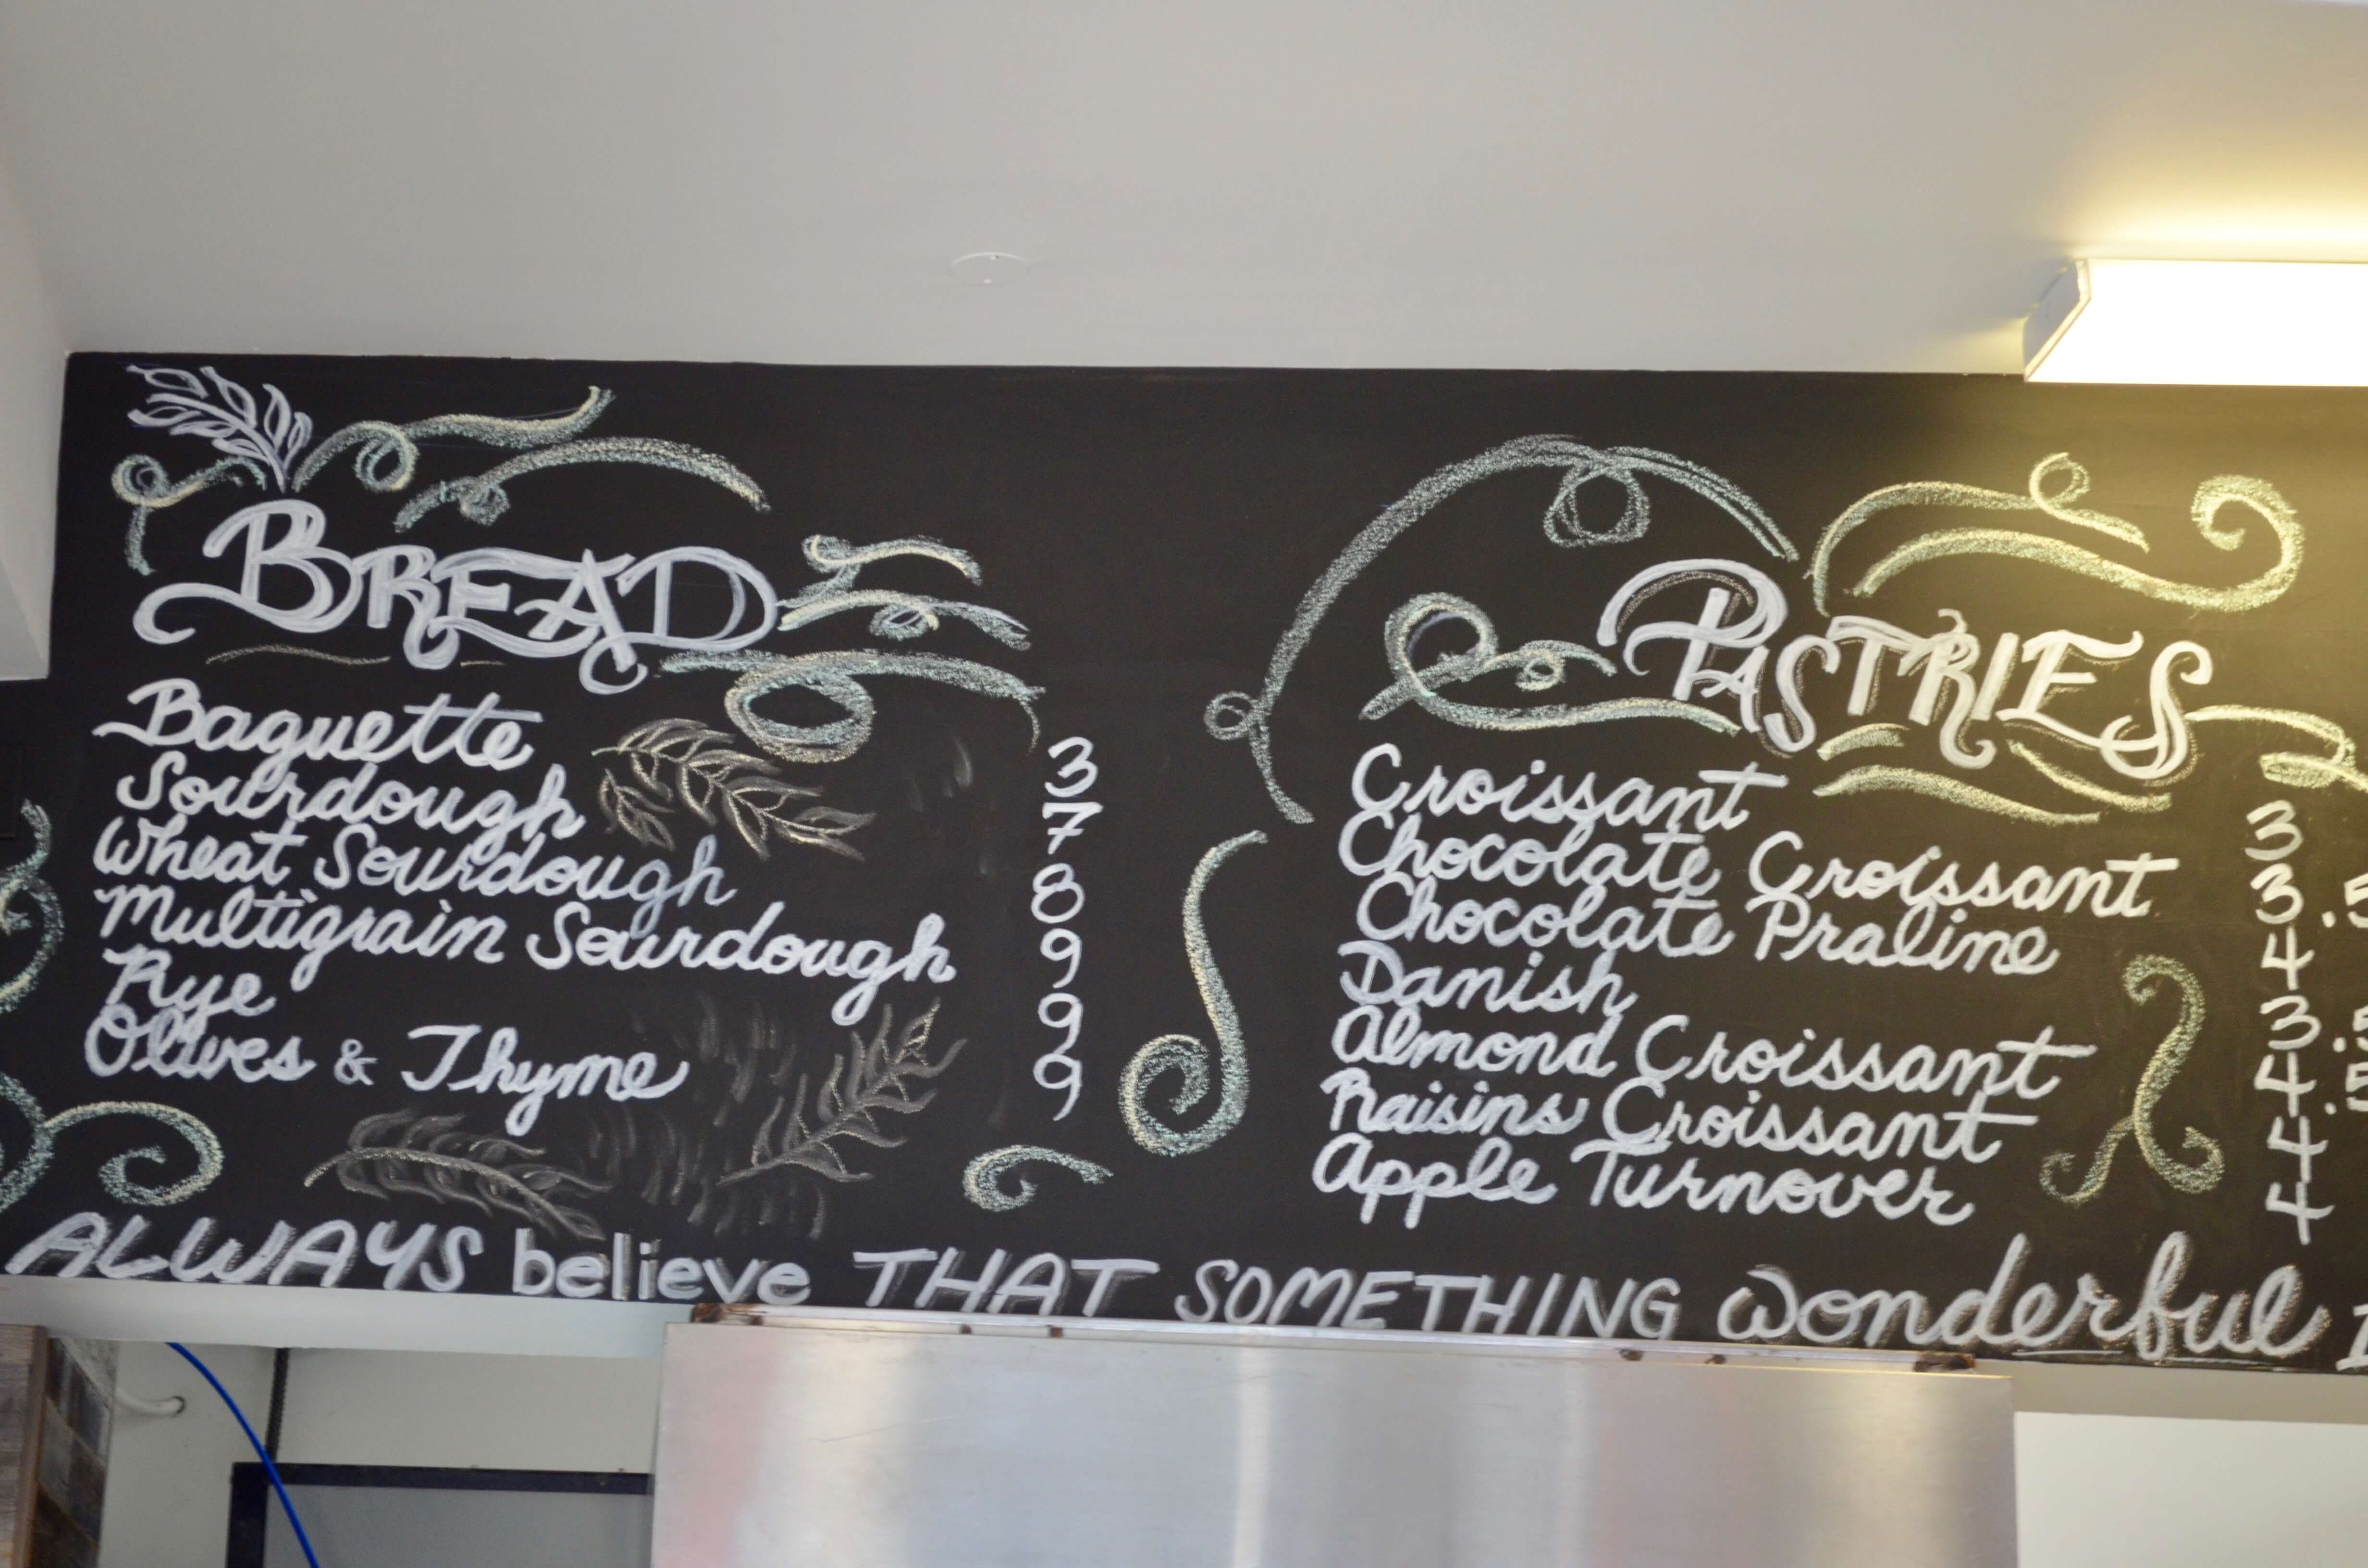 BREAD
Baguette 3
Sourdough 7
Wheat Sourdough 8
Multigrain Sourdough 9
Rye 9
Olives & Thyme 9
PASTRIES
Croissant 3
Chocolate Croissant 3.5
Chocolate Praline 4
Danish 3.5
Almond Croissant 4.5
Raisins Croissant 4
Apple Turnover 4
ALWAYS believe THAT SOMETHING wonderful